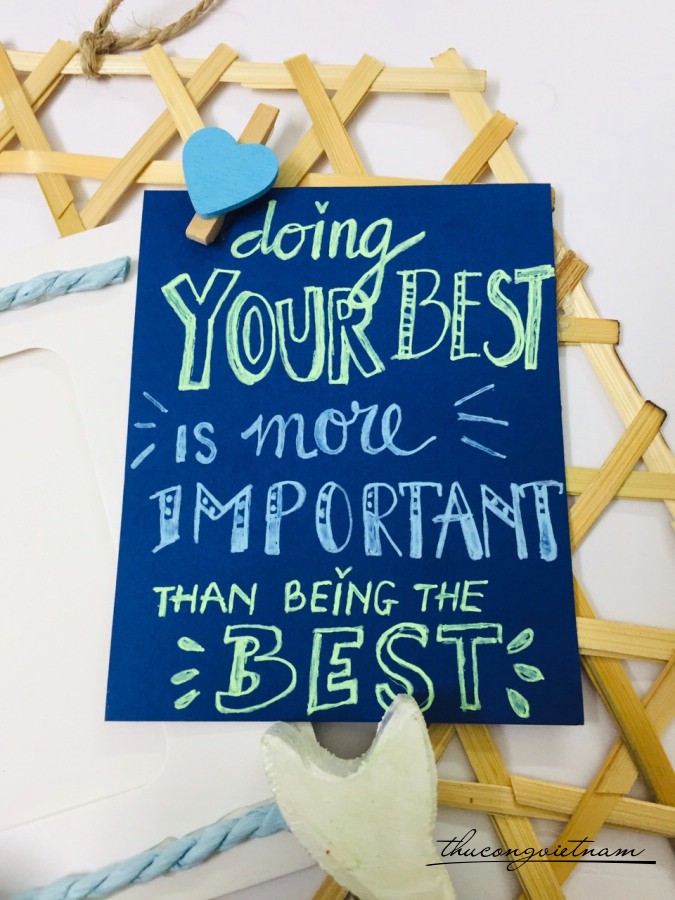 doing
YOUR BEST
is more
IMPORTANT
THAN BEING THE
BEST
thucongvietnam